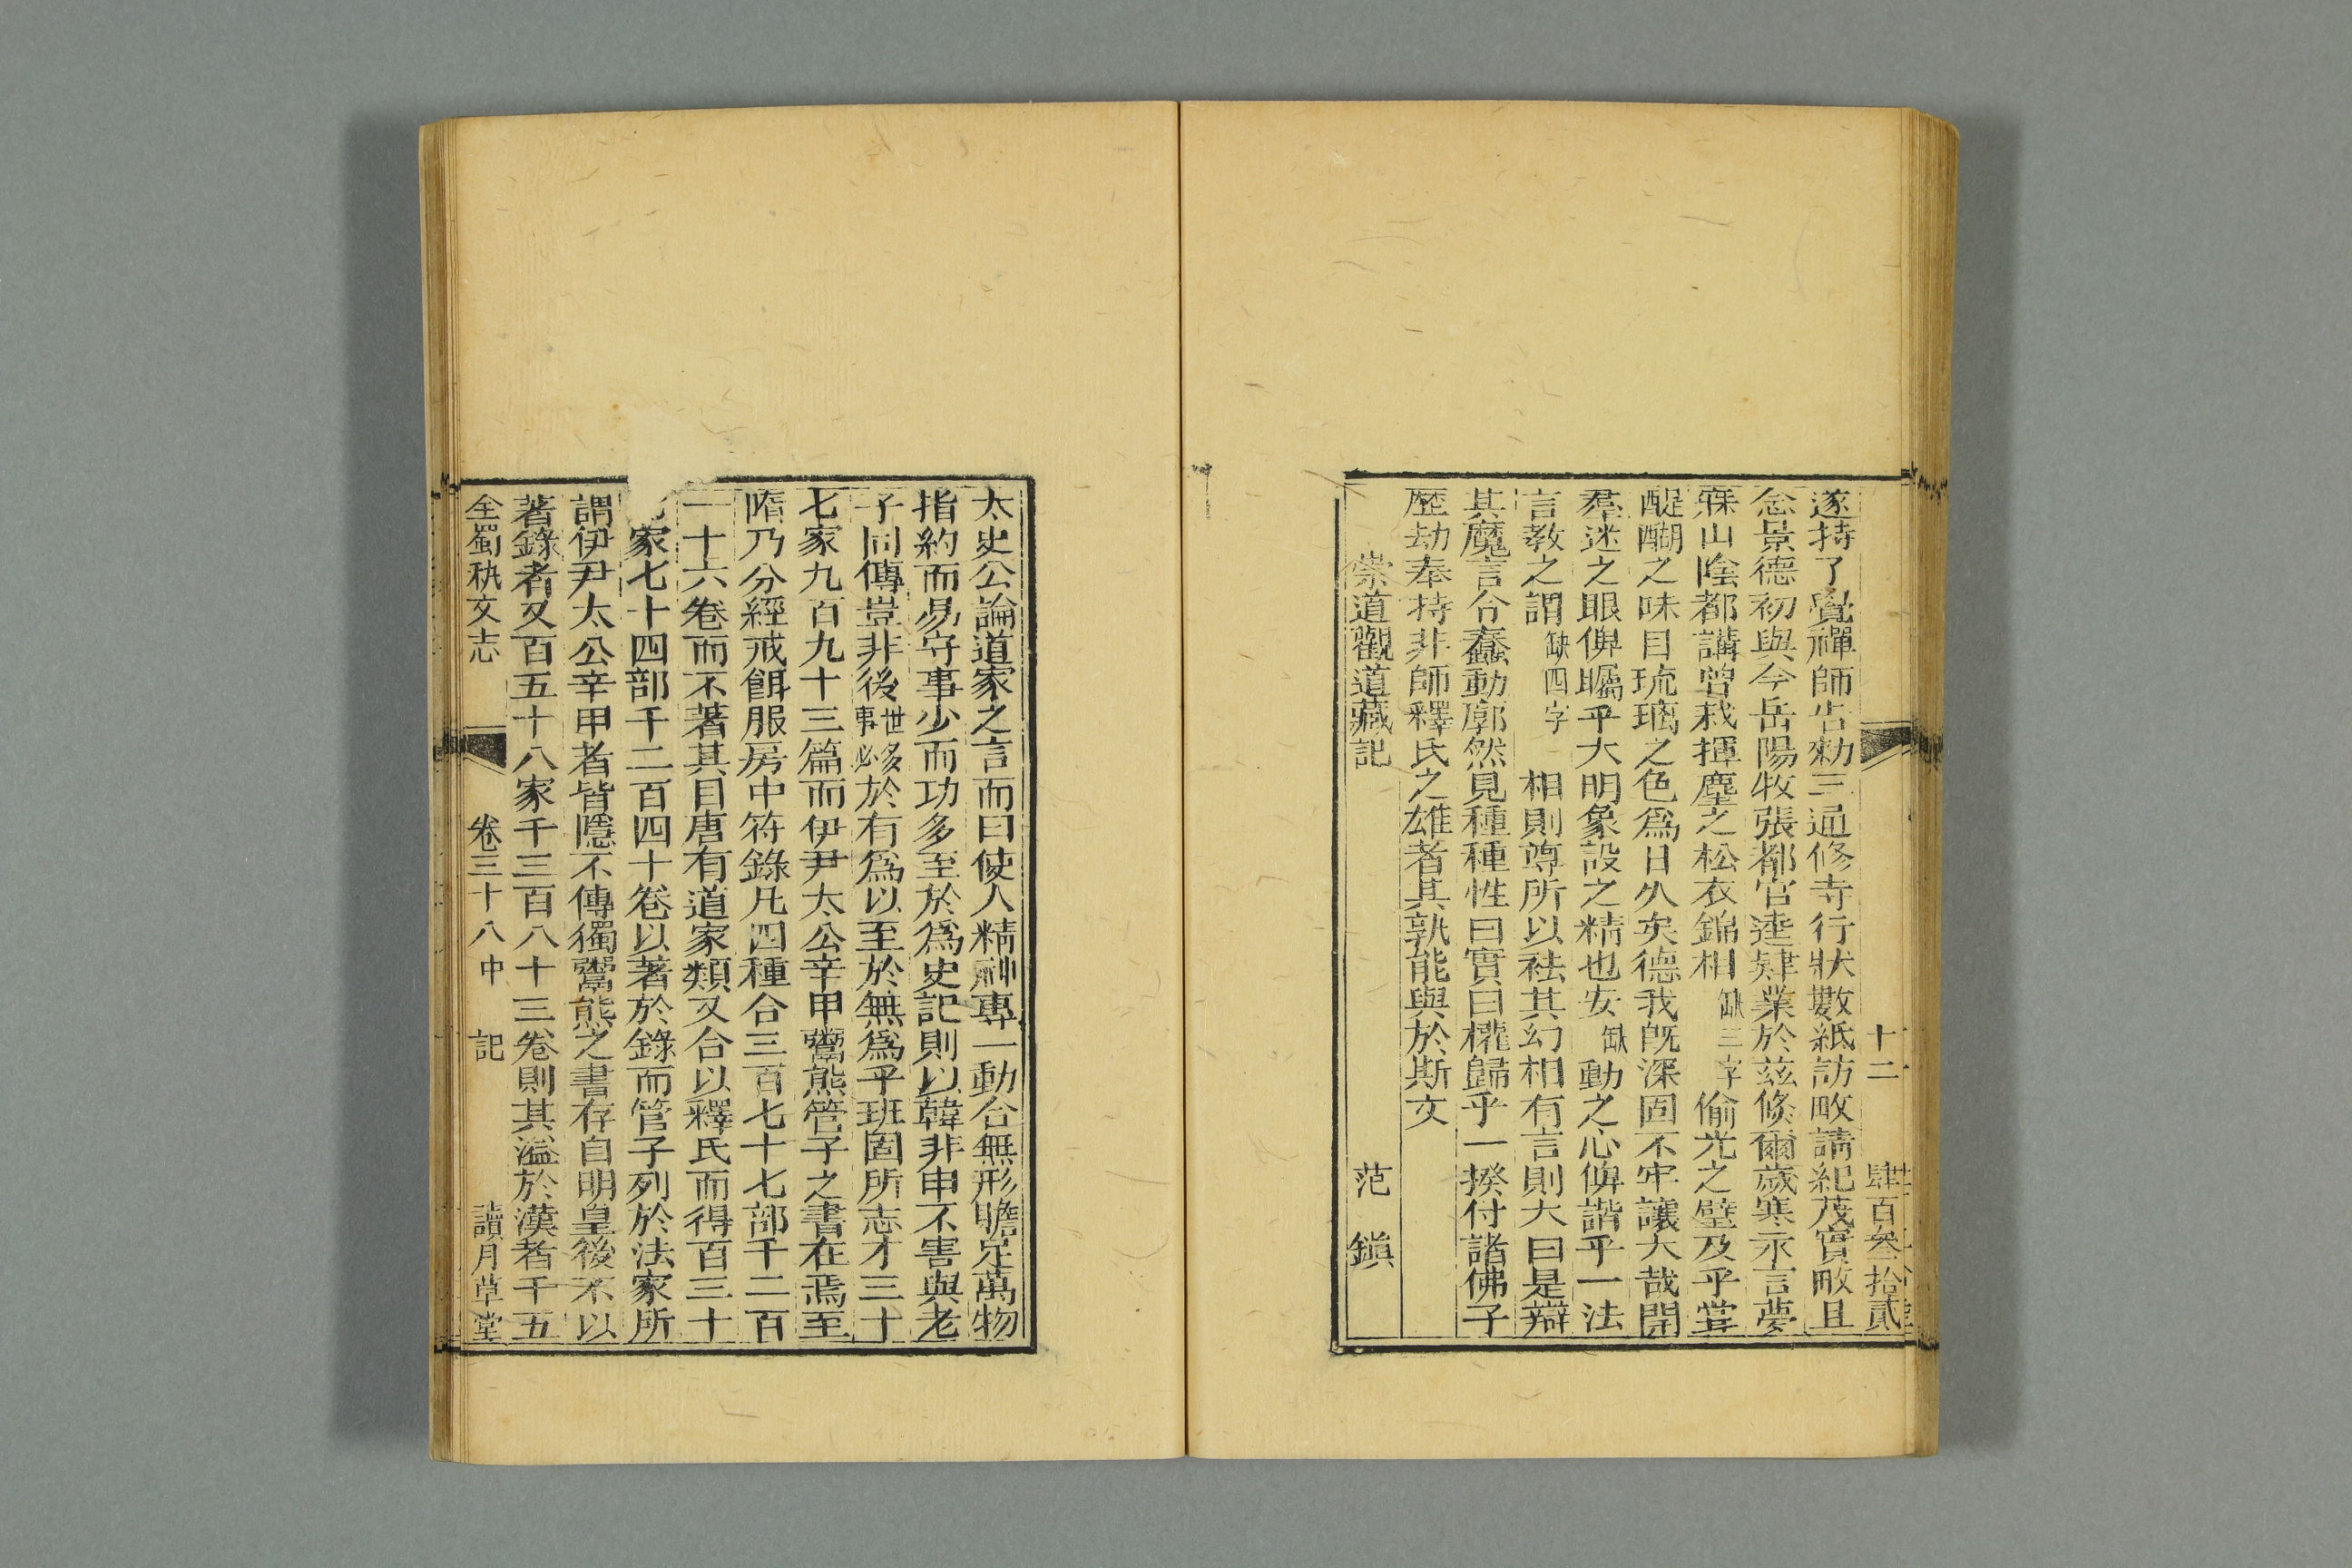 十二 肆百叁拾貳
遂持了覺禪師告勑三通修寺行狀數紙訪畋請紀茂實畋且
念景德初與今岳陽牧張都官逵肄業於茲倏爾歲寒永言夢
寐山陰都講曾栽揮麈之松衣錦相缺三字偷光之壁及乎嘗
醍醐之味目琉璃之色爲日久矣德我既深固不牢讓大哉開
羣迷之眼俾矚乎大明象設之精也安缺動之心俾諧乎一法
言教之謂缺四字相則尊所以祛其幻相有言則大曰是辯
其魔言合蠢動廓然見種種性曰實曰權歸乎一揆付諸佛子
歷劫奉持非師釋氏之雄者其孰能與於斯文
崇道觀道藏記 范鎭
太史公論道家之言而曰使人精神專一動合無形贍足萬物
指約而易守事少而功多至於爲史記則以韓非申不害與老
子同傳豈非後世多事必於有爲以至於無爲乎班固所志才三十
七家九百九十三篇而伊尹太公辛甲鬻熊管子之書在焉至
隋乃分經戒餌服房中符錄凡四種合三百七十七部千二百
一十六卷而不著其目唐有道家類又合以釋氏而得百三十
家七十四部千二百四十卷以著於錄而管子列於法家所
謂伊尹太公辛甲者皆隱不傳獨鬻熊之書存自明皇後不以
著錄者又百五十八家千三百八十三卷則其溢於漢者千五
全蜀秇文志 卷三十八中 記 讀月草堂